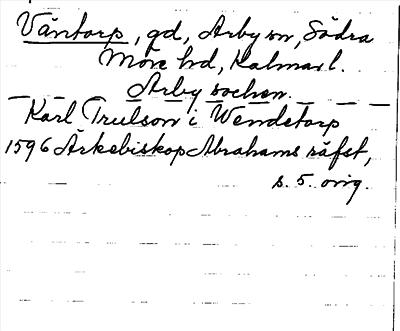 Väntorp, gd, Arby sn, Södra
Möre hd, Kalmar l.
Arby socken.
Karl Trulson i Wendetorp
1596 Ärkebiskop Abrahams räfst,
s. 5. orig.